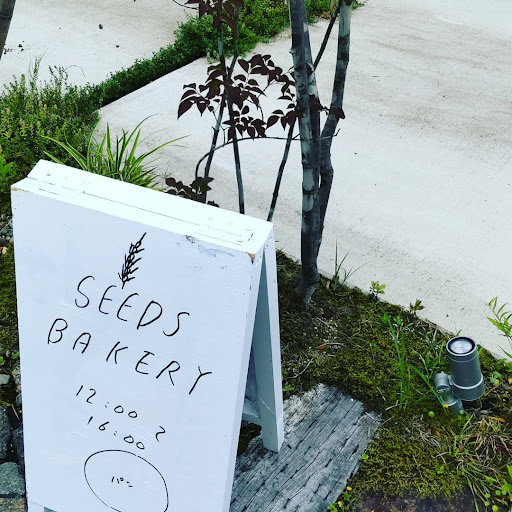 SEEDS
BAKERY
12:00 〜
16:00
パン